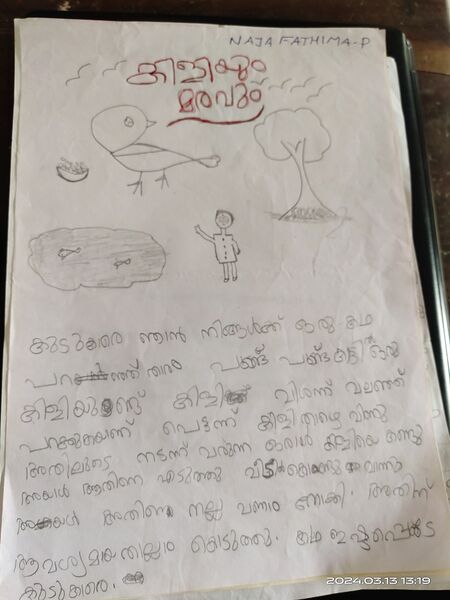 NAJA FATHIMA-P
കിളിയും
മരവും
കുടുകാരെ ഞാൻ നിങ്ങൾക്ക് ഒരു കഥ
പറഞ്ഞ് തരാം പണ്ട് പണ്ട് ഒരു
കിളിയുണ്ട് കിളി വിശന്ന് വലഞ്ഞ്
പറക്കുകയാണ് പെട്ടന്ന് കിളി താഴെ വിണു
അതിലുടെ നടന്ന് വരുന്ന ഒരാൾ കിളിയെ കണ്ടു
അയാൾ അതിനെ എടുത്തു
അയാൾ അതിനെ നല്ല വണം നോക്കി. അതിന്
ആവശ്യമായതല്ലാം കൊടുത്തു. കഥ ഇഷ്ടപ്പെട്ട
കുടുകാരെ.
2024.03.13 13:19